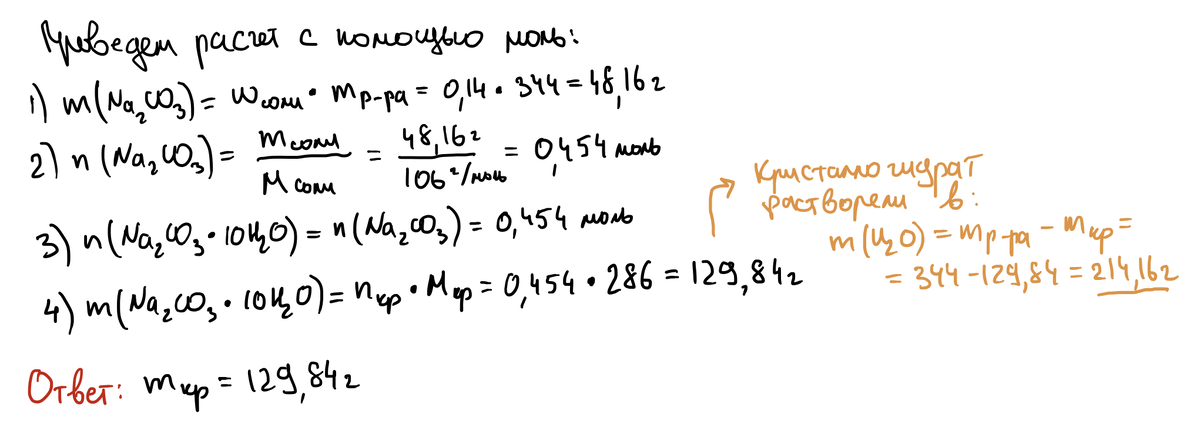 Проведем расчет с помощью моль:
1) m(Na₂CO₃) = wсоли · mр-ра = 0,14 · 344 = 48,16 г
2) n(Na₂CO₃) = mсоли / Mсоли = 48,16 г / 106 г/моль = 0,454 моль
3) n(Na₂CO₃ · 10H₂O) = n(Na₂CO₃) = 0,454 моль
4) m(Na₂CO₃ · 10H₂O) = nкр · Mкр = 0,454 · 286 = 129,84 г
→ Кристаллогидрат
растворели в:
m(H₂O) = mр-ра – mкр =
= 344 – 129,84 = 214,16 г
Ответ: mкр = 129,84 г